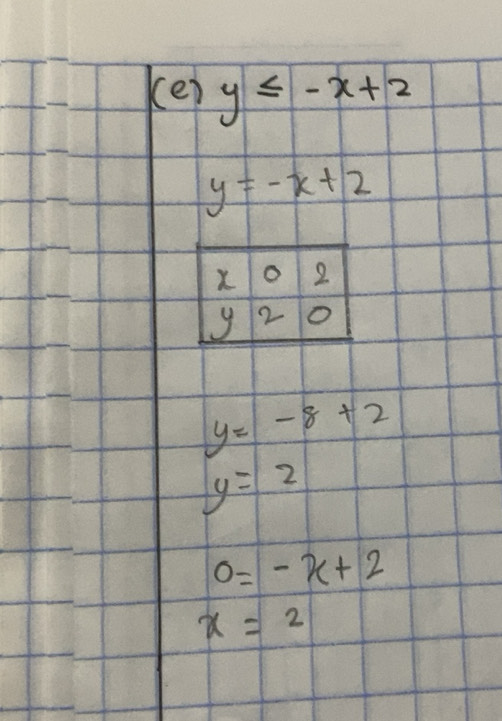 (e) y ≤ -x+2
y = -x+2
x 0 2
y 2 0
y= -8 +2
y= 2
0= -x+2
x = 2